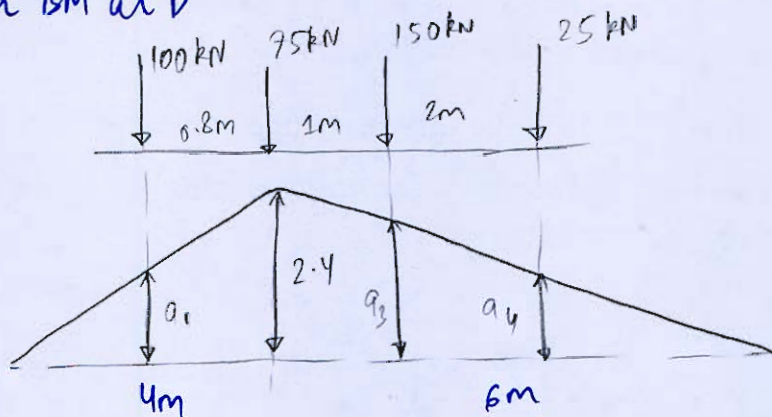 BM at D
100kN 75kN 150kN 25kN
0.8m 1m 2m
a₁ 2.4 a₃ a₄
4m 6m